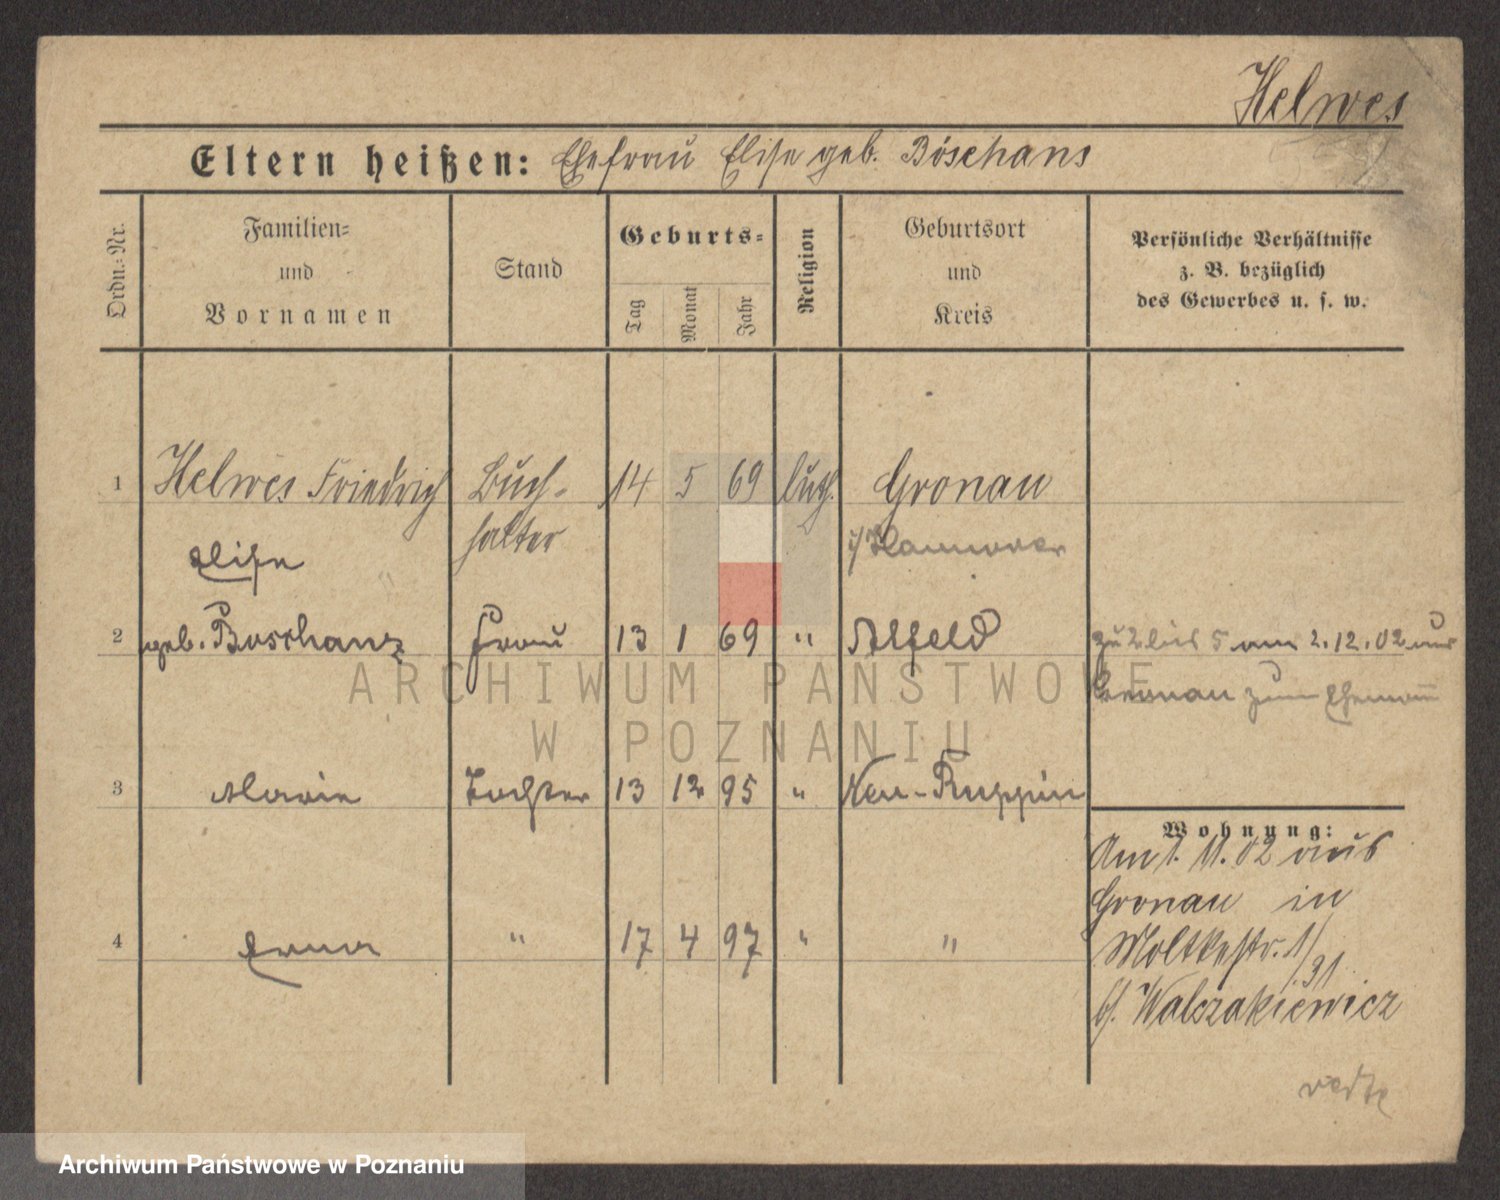 Helwes
Eltern heißen: Ehefrau Elise geb. Böschans
Ordn.-Nr.
Familien-
und
Vornamen
Stand
Geburts-
Tag
Monat
Jahr
Religion
Geburtsort
und
Kreis
Persönliche Verhältnisse
z. B. bezüglich
des Gewerbes u. s. w.
1 Helwes Friedrich Buch- 14 5 69 luth. Gronau
halter i/Hannover
Elise
2 geb. Boschans Frau 13 1 69 " Alfeld zu 2 bis 5 am 2.12.02 aus
Gronau zum Ehemann
ARCHIWUM PAŃSTWOWE
W POZNANIU
3 Marie Tochter 13 12 95 " Neu-Ruppin
Wohnung:
Am 1. 11. 02 aus
Gronau in
4 Erna " 17 4 97 " "
Moltkestr. 1/
31
b/. Walczakiewicz
Archiwum Państwowe w Poznaniu